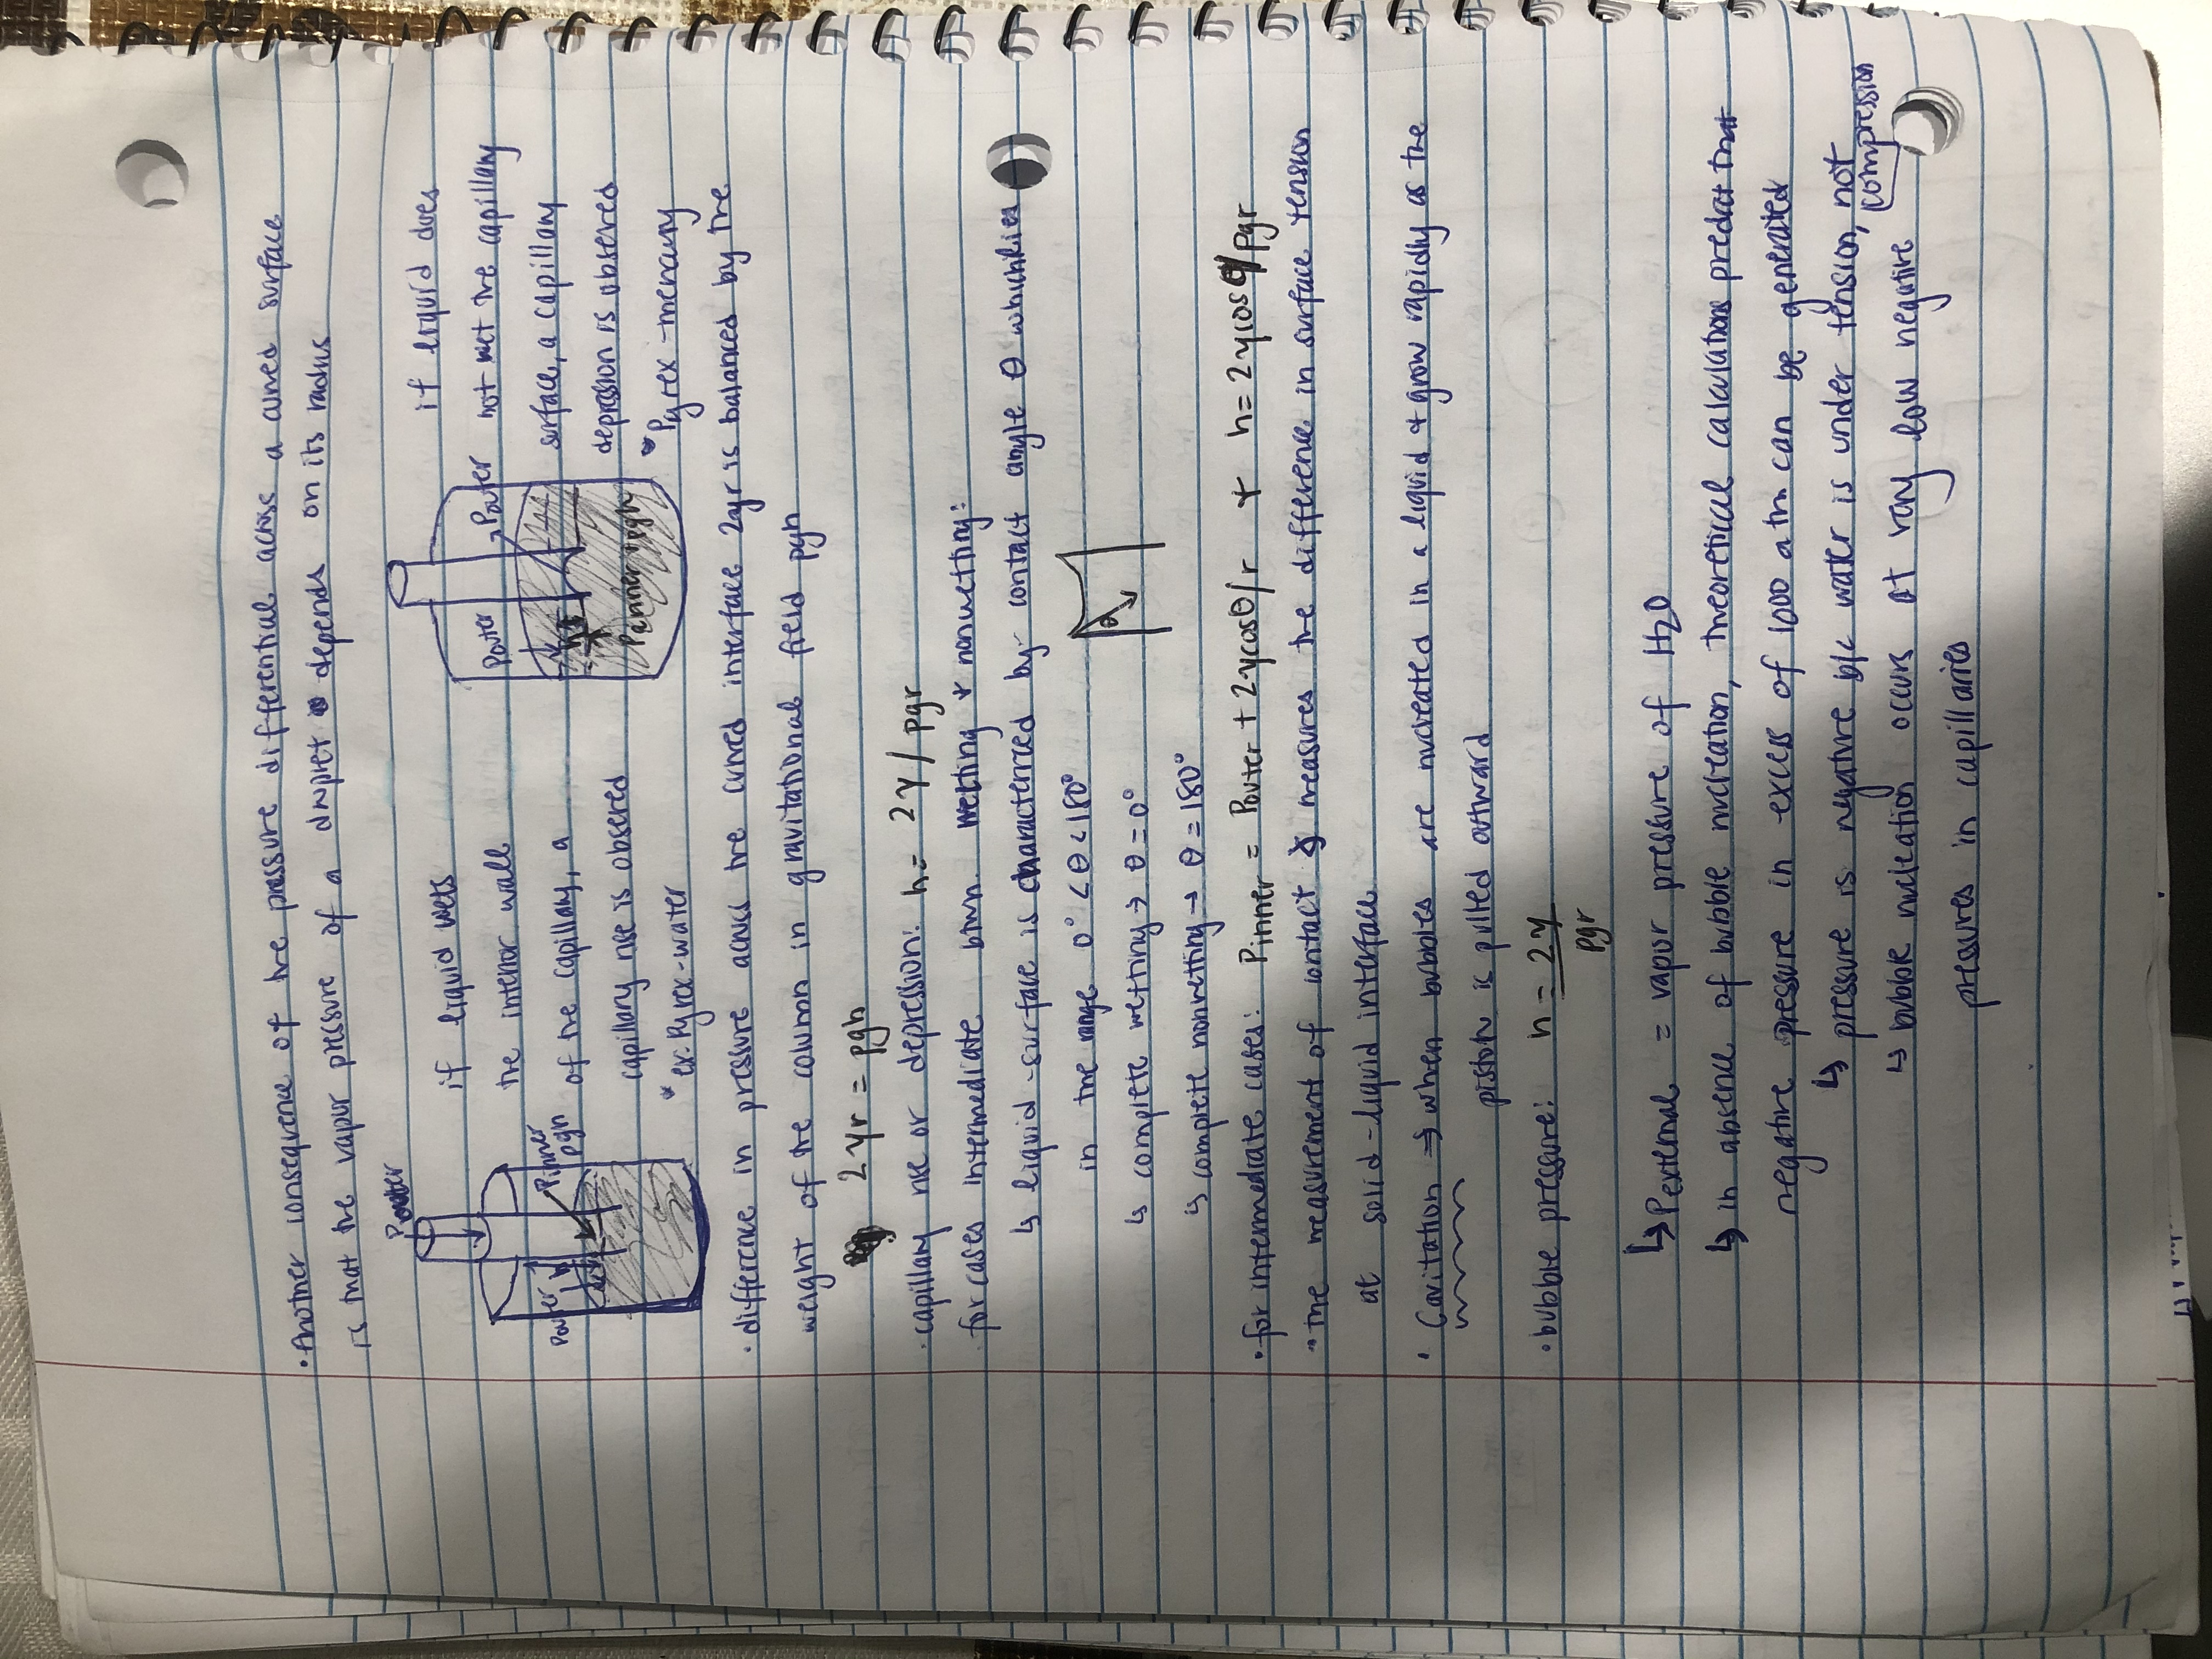 • Another consequence of the pressure differential across a curved surface
is that the vapor pressure of a droplet depends on its radius
Pouter
if liquid wets
the interior wall
of the capillary, a
capillary rise is obsered
* ex. Pyrex-water
Pouter
h
Pinner
ρgh
Pouter
Pouter
h
Pinner + ρgh
if liquid does
not wet the capillary
surface, a capillary
depression is observed
* Pyrex-mercury
• difference in pressure across the curved interface 2γr is balanced by the
weight of the column in gravitational field ρgh
2γr = ρgh
• capillary rise or depression: h = 2γ/ρgr
for cases intermediate btwn. wetting + nonwetting:
↳ liquid-surface is characterized by contact angle θ which lies
in the range 0° < θ < 180°
θ
↳ complete wetting → θ = 0°
↳ complete nonwetting → θ = 180°
• for intermediate cases: Pinner = Pouter + 2γcosθ/r + h = 2γcosθ/ρgr
• the measurement of contact ∡ measures the difference in surface tension
at solid-liquid interface
• Cavitation → when bubbles are nucleated in a liquid + grow rapidly as the
piston is pulled outward
• bubble pressure: h = 2γ
ρgr
↳ Pexternal = vapor pressure of H2O
↳ in absence of bubble nucleation, theoretical calculations predict that
negative pressure in excess of 1000 atm can be generated
↳ pressure is negative b/c water is under tension, not
compression
↳ bubble nucleation occurs at very low negative
pressures in capillaries